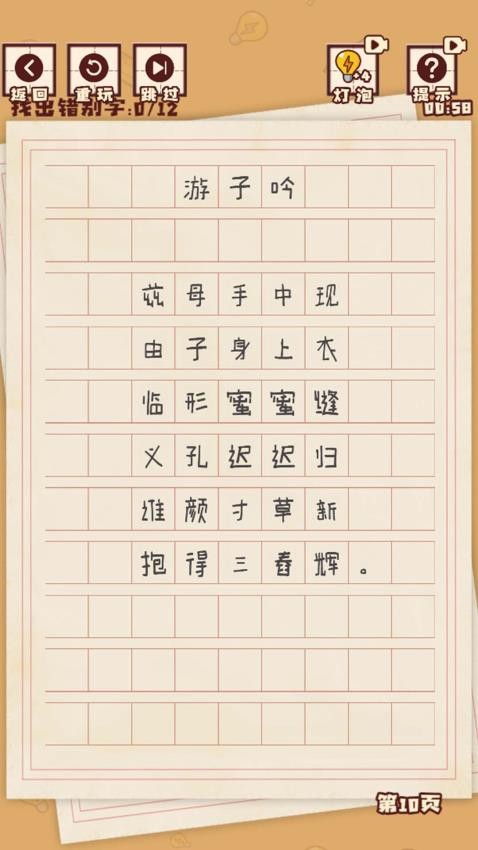 返回
重玩
跳过
+4
灯泡
提示
找出错别字:0/12
00:58
游子吟
兹母手中现
由子身上衣
临形蜜蜜缝
义孔迟迟归
谁颜才草新
抱得三舂辉。
第10页